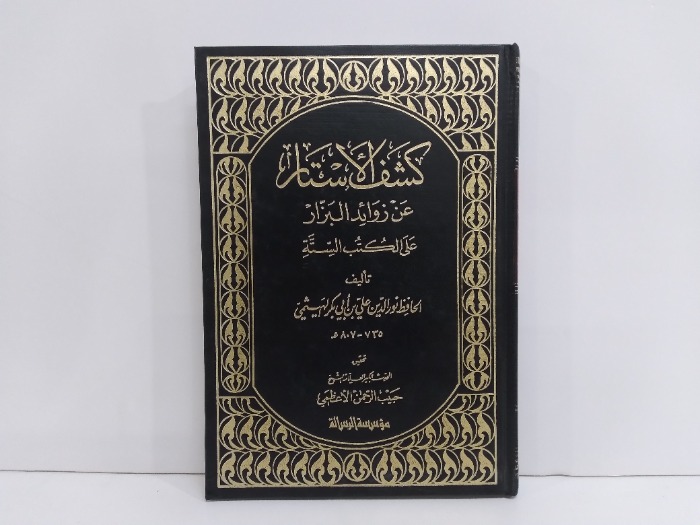 كشف الأستار
عن زوائد البزار
على الكتب الستة
تأليف
الحافظ نور الدين علي بن أبي بكر الهيثمي
٧٣٥ - ٨٠٧ هـ
تحقيق
حبيب الرحمن الأعظمي
مؤسسة الرسالة